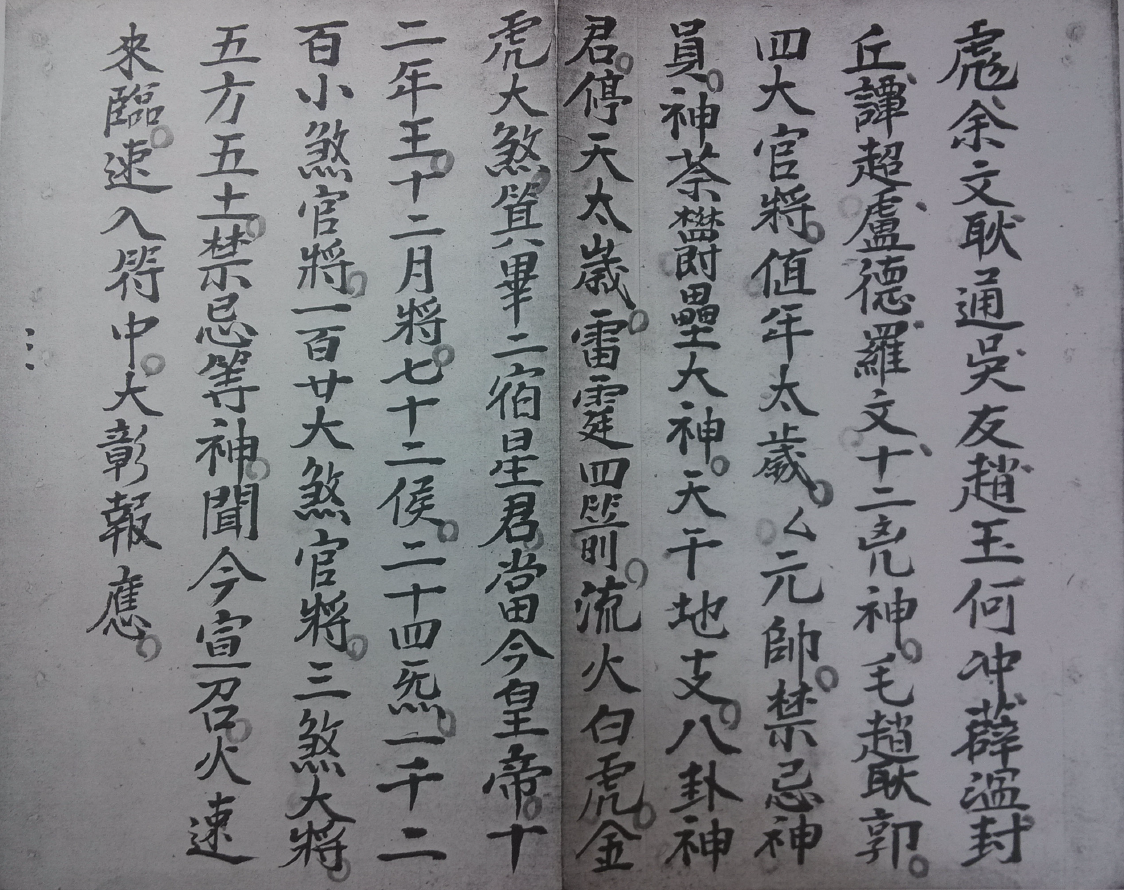 彪余文耿通吳友趙玉何冲薛温封
丘譚超盧德羅文十二兇神。毛趙耿郭。
四大官將。值年太歲。厶元帥。禁忌神
員。神荼欝壘大神。天干地支。八卦神
君。停天太歲。雷霆四箭。流火白虎。金
虎大煞。箕畢二宿星君。當今皇帝。十
二年王。十二月將。七十二侯。二十四炁。一千二
百小煞官將。一百廿大煞官將。三煞大將。
五方五土。禁忌等神。聞今宣召。火速
來臨。速入符中。大彰報應。